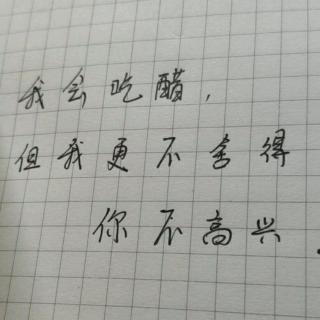 我会吃醋,
但我更不舍得
你不高兴.